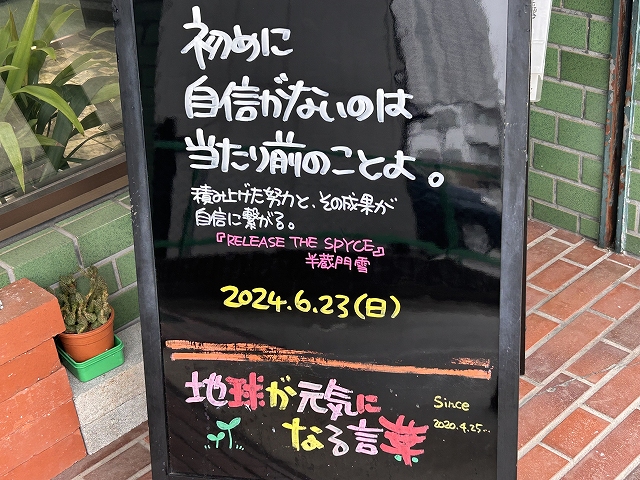 初めに
自信がないのは
当たり前のことよ。
積み上げた努力と、その成果が
自信に繋がる。
『RELEASE THE SPYCE』
半蔵門雪
2024.6.23(日)
地球が元気に
なる言葉
Since
2020.4.25...